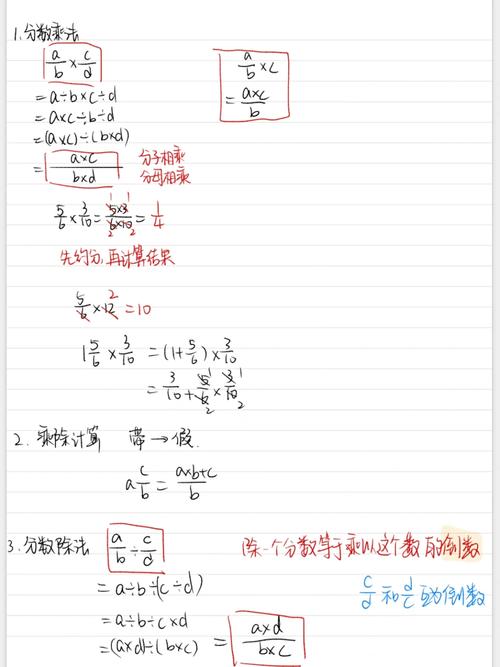 1.分数乘法
a/b × c/d
= a÷b×c÷d
= a×c÷b÷d
= (a×c)÷(b×d)
= a×c / b×d 分子相乘 分母相乘
a/b × c
= a×c / b
5/6 × 3/10 = 5×3 / 6×10 = 1/4
先约分,再计算结果
5/6 × 12 = 10
1 5/6 × 3/10 = (1+5/6) × 3/10
= 3/10 + 5/6 × 3/10
2. 乘除计算 带→假.
a c/b = a×b+c / b
3.分数除法 a/b ÷ c/d 除一个分数等于乘以这个数的倒数
= a÷b÷(c÷d) c/d 和 d/c 互为倒数
= a÷b÷c×d
= (a×d)÷(b×c) = a×d / b×c